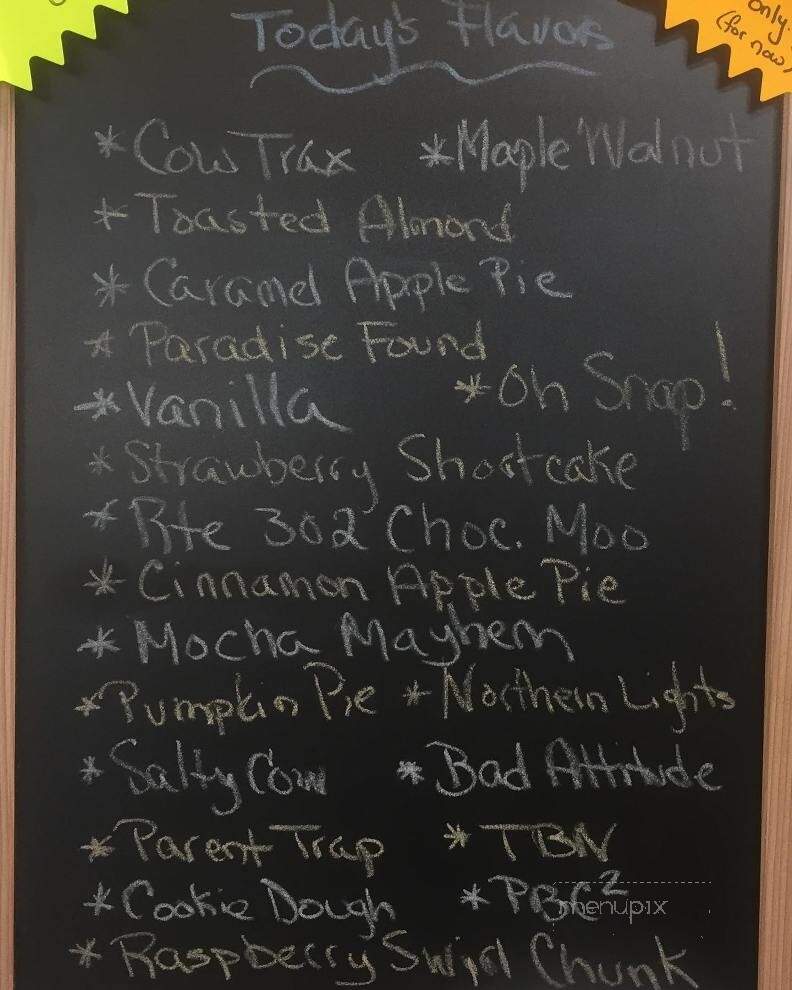 only.
(for now)
Today's Flavors
* Cow Trax * Maple Walnut
* Toasted Almond
* Caramel Apple Pie
* Paradise Found
* Vanilla * Oh Snap!
* Strawberry Shortcake
* Rte 302 Choc. Moo
* Cinnamon Apple Pie
* Mocha Mayhem
* Pumpkin Pie * Northern Lights
* Salty Cow * Bad Attitude
* Parent Trap * TBN
* Cookie Dough * PBC²
menupix
* Raspberry Swirl Chunk